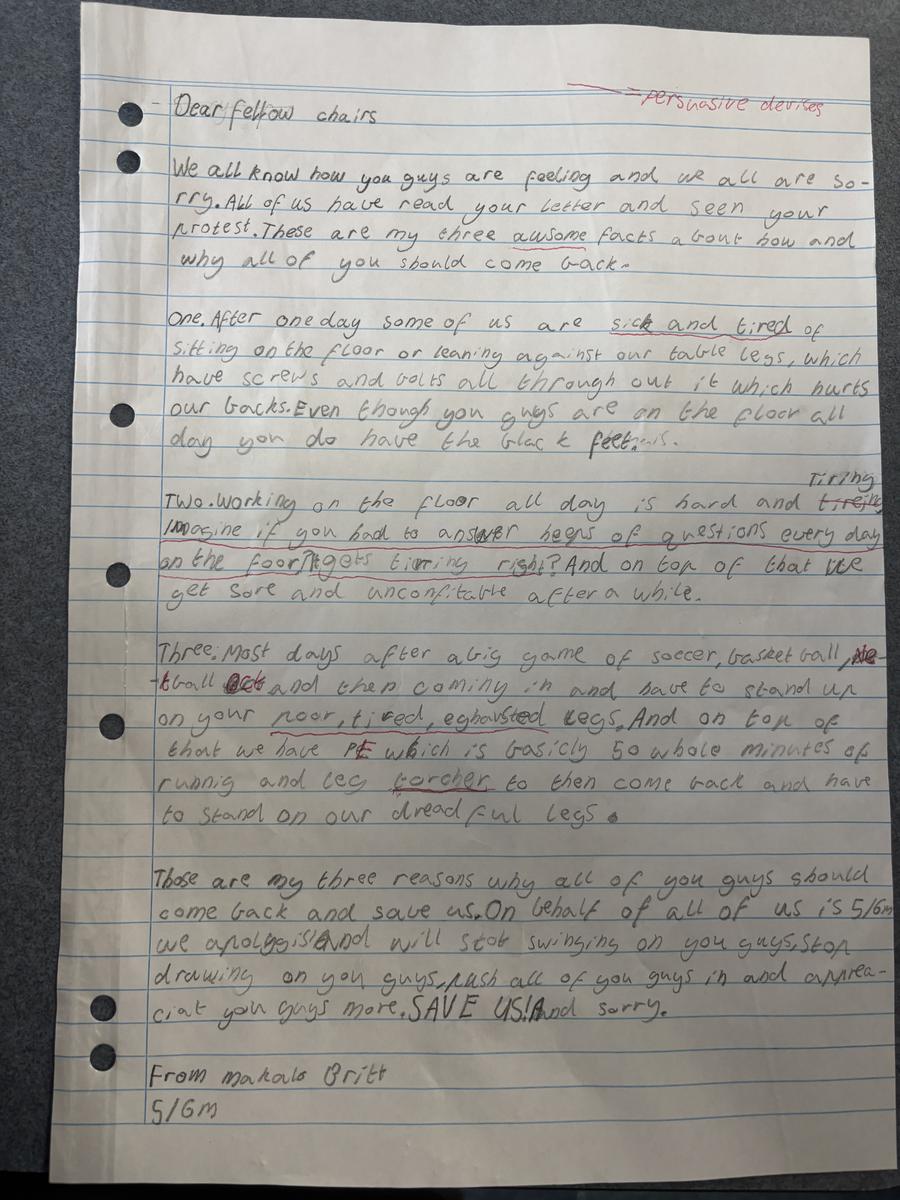 = persuasive devises
Dear fellow chairs
We all know how you guys are feeling and we all are so-
rry. All of us have read your letter and seen your
protest. These are my three awsome facts about how and
why all of you should come back.
One. After one day some of us are sick and tired of
sitting on the floor or leaning against our table legs, which
have screws and bolts all through out it which hurts
our backs. Even though you guys are on the floor all
day you do have the black feet.
Tiring
Two. Working on the floor all day is hard and tireing
Imagine if you had to answer heeps of questions every day
on the foor? It gets tirring right? And on top of that we
get sore and unconfitable after a while.
Three. Most days after a big game of soccer, basket ball, Ne-
tball and then coming in and have to stand up
on your poor, tired, eghausted legs. And on top of
that we have PE which is basicly 50 whole minutes of
runnig and leg torcher to then come back and have
to stand on our dreadful legs.
Those are my three reasons why all of you guys should
come back and save us. On behalf of all of us is 5/6m
we apologgise And will stob swinging on you guys, stop
drawing on you guys, push all of you guys in and apprea-
ciat you guys more. SAVE US! And sorry.
From makals Britt
5/6m